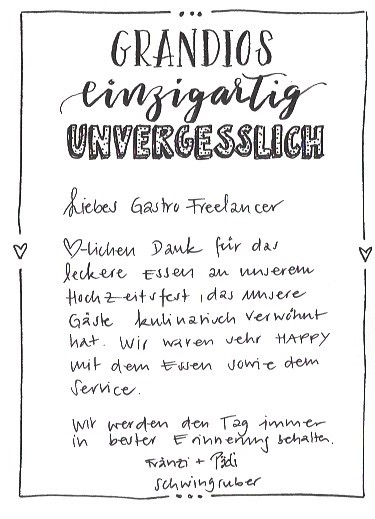 GRANDIOS
einzigartig
UNVERGESSLICH
Liebes Gastro Freelancer
♡-lichen Dank für das
leckere Essen an unserem
Hochzeitsfest, das unsere
Gäste kulinarisch verwöhnt
hat. Wir waren sehr HAPPY
mit dem Essen sowie dem
Service.
Wir werden den Tag immer
in bester Erinnerung behalten.
Fränzi + Pädi
Schwingruber